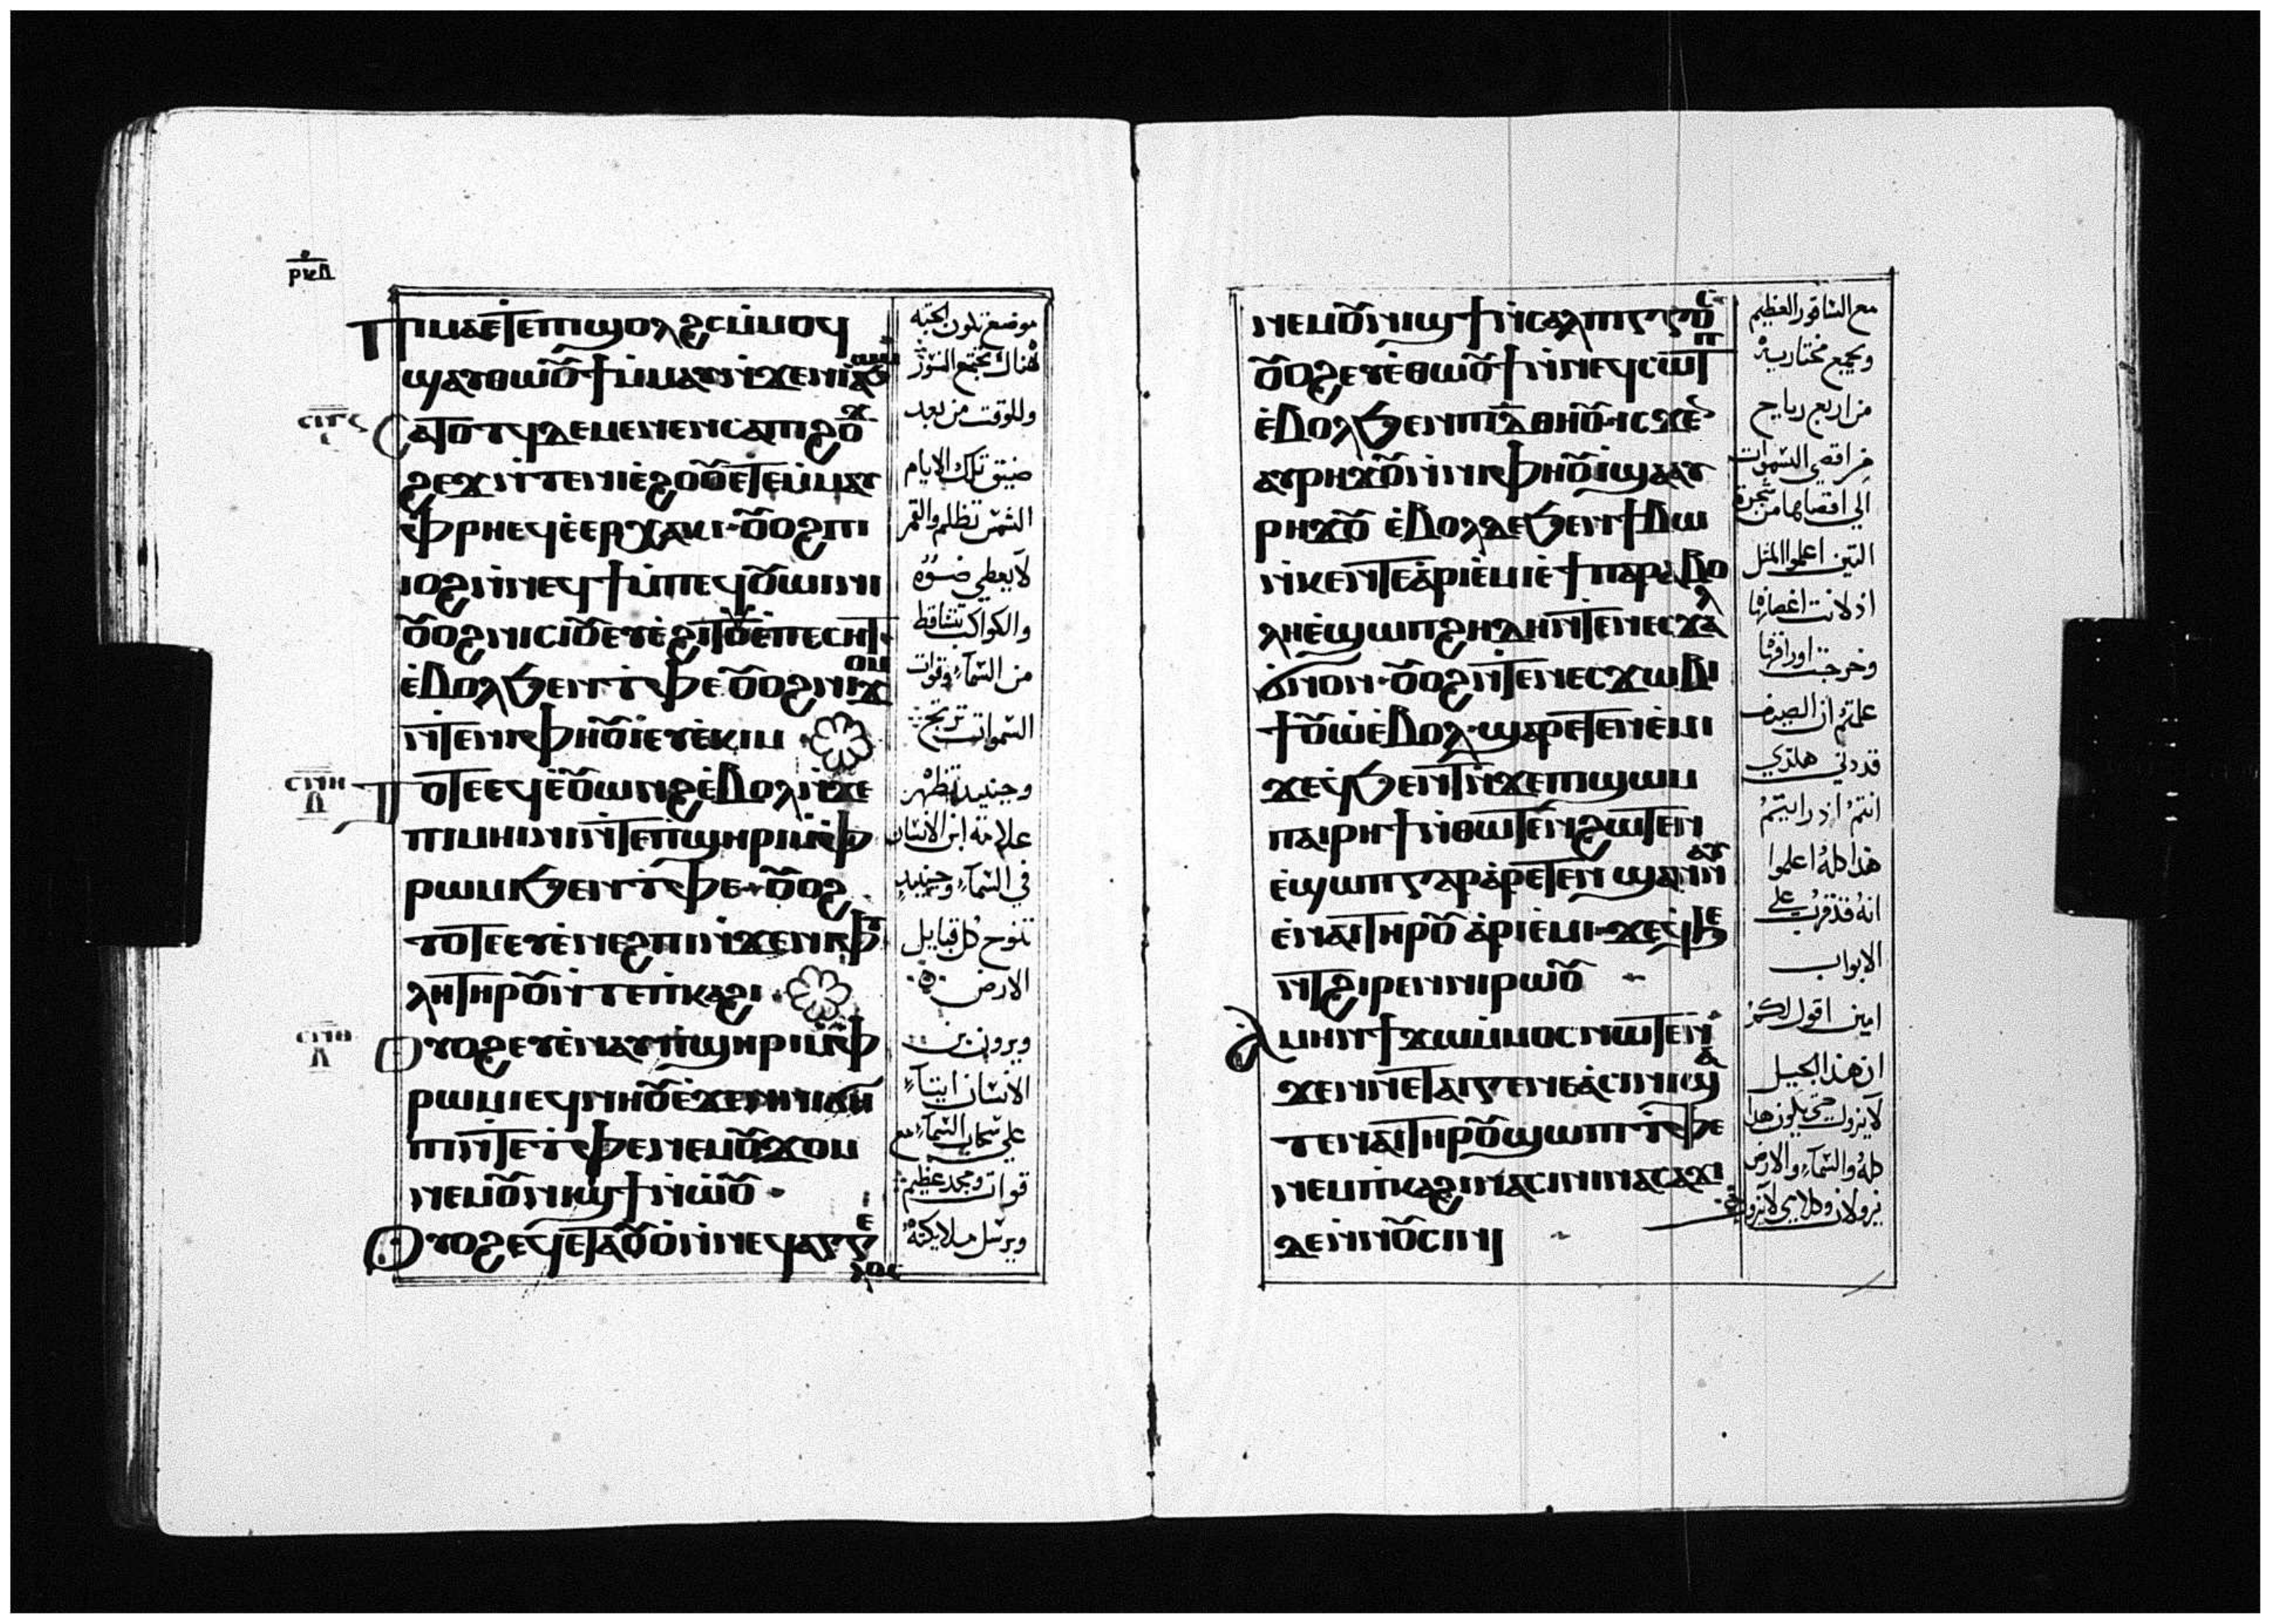 ⲣⲕⲇ
ⲡⲓⲙⲁⲉⲧⲉⲡⲓϣⲟⲗϩⲥⲙ̇ⲙⲟϥ
ϣⲁⲩⲑⲱⲟⲩϯⲙ̇ⲙⲁⲩⲛ̇ϫⲉⲛⲓⲁϧⲱⲙ
ⲥⲁⲧⲟⲧϥⲇⲉⲙⲉⲛⲉⲛⲥⲁⲡⲓϩⲟ
ϩⲉϫⲛ̇ⲧⲉⲛⲓⲉ̇ϩⲟⲟⲩⲉⲧⲉⲙ̇ⲙⲁⲩ
ⲫⲣⲏⲉϥⲉ̇ⲉⲣⲭⲁⲕⲓ ⲟⲩⲟϩⲡⲓ
ⲓⲟϩⲛ̇ⲛⲉϥϯⲙ̇ⲡⲉϥⲟⲩⲱⲓⲛⲓ
ⲟⲩⲟϩⲛⲓⲥⲓⲟⲩⲉⲩⲉ̇ϩⲓⲧⲟⲩⲉ̇ⲡⲉⲥⲏⲧ
ⲉ̇ⲃⲟⲗϧⲉⲛⲧⲫⲉ ⲟⲩⲟϩⲛⲓϫⲟⲙ
ⲛ̇ⲧⲉⲛⲓⲫⲏⲟⲩⲓ̇ⲉⲩⲉ̇ⲕⲓⲙ
ⲧⲟⲧⲉⲉϥⲉ̇ⲟⲩⲱⲛϩⲉ̇ⲃⲟⲗⲛ̇ϫⲉ
ⲡⲓⲙⲏⲓⲛⲓⲛ̇ⲧⲉⲡ̇ϣⲏⲣⲓⲙ̇ⲫ
ⲣⲱⲙⲓϧⲉⲛⲧⲫⲉ ⲟⲩⲟϩ
ⲧⲟⲧⲉⲉⲩⲉ̇ⲛⲉϩⲡⲓⲛ̇ϫⲉⲛⲓⲫⲩ
ⲗⲏⲧⲏⲣⲟⲩⲛ̇ⲧⲉⲡ̇ⲕⲁϩⲓ
ⲟⲩⲟϩⲉⲩⲉ̇ⲛⲁⲩⲡ̇ϣⲏⲣⲓⲙ̇ⲫ
ⲣⲱⲙⲓⲉϥⲛⲏⲟⲩⲉ̇ϫⲉⲛⲛⲓϭⲏ
ⲡⲓⲛ̇ⲧⲉⲧⲫⲉⲛⲉⲙⲟⲩϫⲟⲙ
ⲛⲉⲙⲟⲩⲛⲓϣϯⲛ̇ⲱ̇ⲟⲩ
ⲟⲩⲟϩⲉϥⲉⲧⲁⲟⲩⲟ̇ⲛ̇ⲛⲉϥⲁⲅⲅⲉ
ⲗⲟⲥ
موضع تكون الجثة
هناك تجتمع النسور
وللوقت من بعد
ضيق تلك الايام
الشمس تظلم والقمر
لا يعطي ضوؤه
والكواكب تتساقط
من السماء وقوات
السموات ترتج
وحينيد تظهر
علامة ابن الانسان
في السماء وحينيد
تنوح كل قبايل
الارض
ويرون بن
الانسان ايتاء
علي سحاب السماء مع
قوات ومجد عظيم
ويرسل ملايكته
ⲛⲉⲙⲟⲩⲛⲓϣϯⲛ̇ⲥⲁⲗⲡⲓⲅⲅⲟⲥ
ⲟⲩⲟϩⲉⲩⲉ̇ⲑⲱⲟⲩϯⲛ̇ⲛⲉϥⲥⲱⲧⲡ
ⲉ̇ⲃⲟⲗϧⲉⲛⲡⲓⲇ̅ⲑⲏⲟⲩ ⲓⲥϫⲉⲛ
ⲁⲩⲣⲏϫⲟⲩⲛ̇ⲛⲓⲫⲏⲟⲩⲓ̇ϣⲁⲁⲩ
ⲣⲏϫⲟⲩ ⲉ̇ⲃⲟⲗⲇⲉϧⲉⲛϯⲃⲱ
ⲛ̇ⲕⲉⲛⲧⲉⲁ̇ⲣⲓⲉ̇ⲙⲓⲉ̇ϯⲡⲁⲣⲁⲃⲟ
ⲗⲏⲉ̇ϣⲱⲡϩⲏⲇⲏⲛ̇ⲧⲉⲛⲉⲥϫⲁⲗ
ϭ̇ⲛⲟⲛ ⲟⲩⲟϩⲛ̇ⲧⲉⲛⲉⲥϫⲱⲃⲓ
ϯⲟⲩⲱ̇ⲉ̇ⲃⲟⲗ ϣⲁⲣⲉⲧⲉⲛⲉ̇ⲙⲓ
ϫⲉϥϧⲉⲛⲧⲛ̇ϫⲉⲡⲓϣⲱⲙ
ⲡⲁⲓⲣⲏϯⲛ̇ⲑⲱⲧⲉⲛϩⲱⲧⲉⲛ
ⲉ̇ϣⲱⲡⲅⲁⲣⲁ̇ⲣⲉⲧⲉⲛϣⲁⲛⲛⲁⲩ
ⲉ̇ⲛⲁⲓⲧⲏⲣⲟⲩ ⲁ̇ⲣⲓⲉ̇ⲙⲓ ϫⲉϥϧⲉ
ⲛⲧϩⲓⲣⲉⲛⲛⲓⲣⲱⲟⲩ
ⲁ̇ⲙⲏⲛϯϫⲱⲙ̇ⲙⲟⲥⲛⲱⲧⲉⲛ
ϫⲉⲛⲛⲉⲧⲁⲓⲅⲉⲛⲉⲁ̇ⲥⲓⲛⲓϣⲁ
ⲧⲉⲛⲁⲓⲧⲏⲣⲟⲩϣⲱⲡⲓ ⲧⲫⲉ
ⲛⲉⲙⲡ̇ⲕⲁϩⲓⲛⲁⲥⲓⲛⲓⲛⲁⲥⲁϫⲓ
ⲇⲉⲛ̇ⲛⲟⲩⲥⲓⲛⲓ
مع الساقور العظيم
ويجمع مختاريه
من اربع رياح
من اقصي السموات
الي اقصاها من شجرة
التين اعلموا المثل
اذ لانت اغصانها
وخرجت اوراقها
علمتم ان الصيف
قد دني هكذي
انتم اذ رايتم
هذا كله اعلموا
انه قد قرب علي
الابواب
امين اقول لكم
ان هذا الجيل
لا يزول حتي يكون هدا
كله والسماء والارض
يزولان وكلامي لا يزول